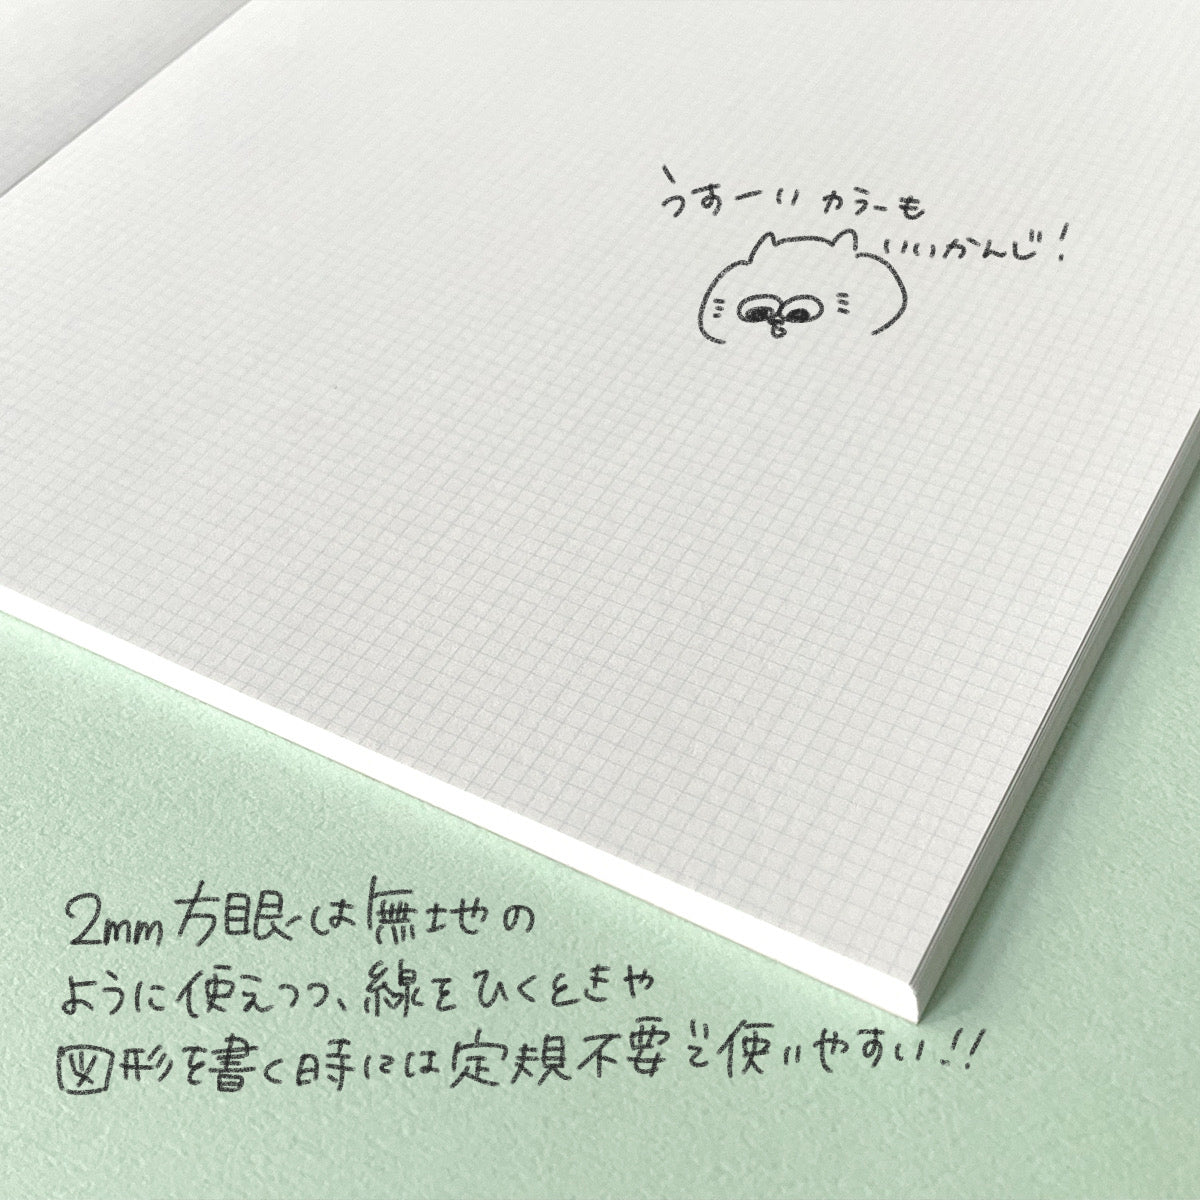 うすーいカラーも
いいかんじ!
2mm方眼は無地の
ように使えつつ、線をひくときや
図形を書く時には定規不要で使いやすい!!